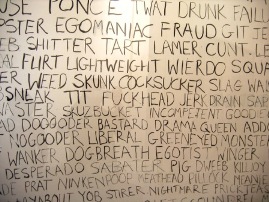 USE PONCE TWAT DRUNK FAILU
PSTER EGOMANIAC FRAUD GIT JE
EB SHITTER TART LAMER CUNT LE
AL FLIRT LIGHTWEIGHT WIERDO SQUA
ER WEED SKUNK COCKSUCKER SLAG WA
SNEAK TIT FUCKHEAD JERK DRAIN SAP
STER SKUZBUCKET INCOMPETENT GOODIE
AD DOGOODER BASTARD DRAMA QUEEN ADD
NOGOODER LIBERAL GREENEYED MONSTE
WANKER DOGBREATH EGOTIST WINGER
DESPERADO SABATEUR PIG DWEEB KILLJOY
DE PRAT NINKENPOOP MEATHEAD PILLOCK MEANIE
ABOUT YOB STIRER NIGHTMARE PRICKTEAS